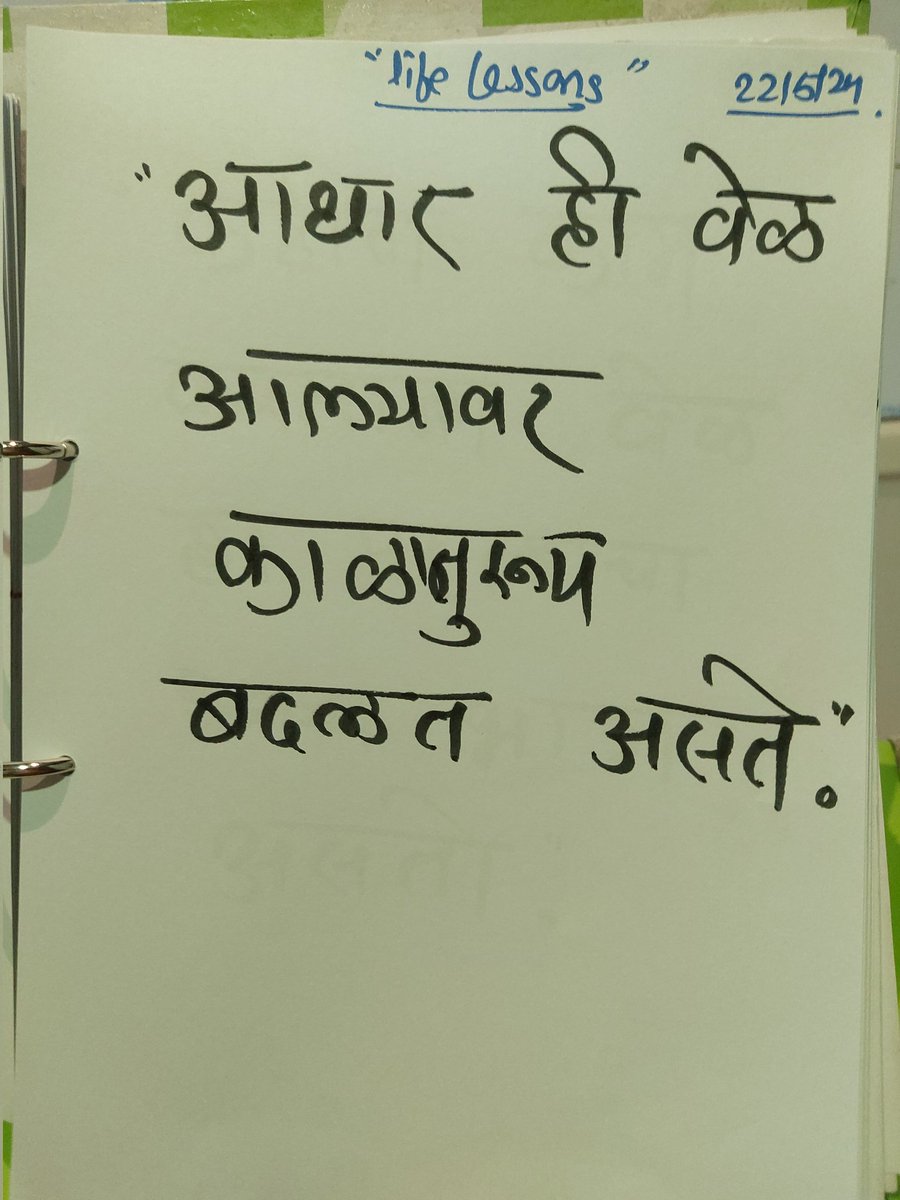 "life lessons" 22/5/24.
"आधार ही वेळ
आल्यावर
काळानुरूप
बदलत असते."